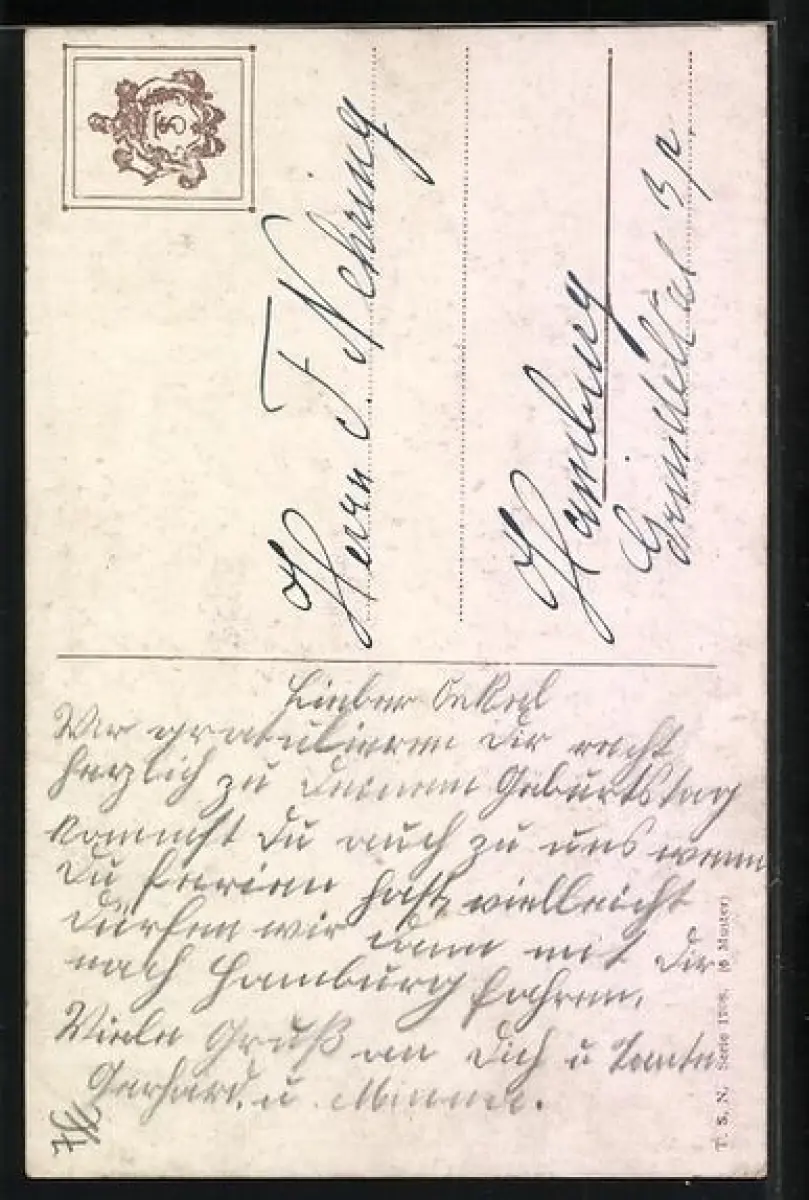 Herrn F. Nehring
Hamburg
Grindeltal 3p
Lieber Onkel
Wir gratulieren Dir recht
herzlich zu Deinem Geburtstag
kommst Du auch zu uns wenn
Du Ferien hast, vielleicht
dürfen wir dann mit Dir
nach Hamburg fahren.
Viele Gruß an Dich u Tante
Gerhard. u.
T. S. N. Serie (6 Muster)